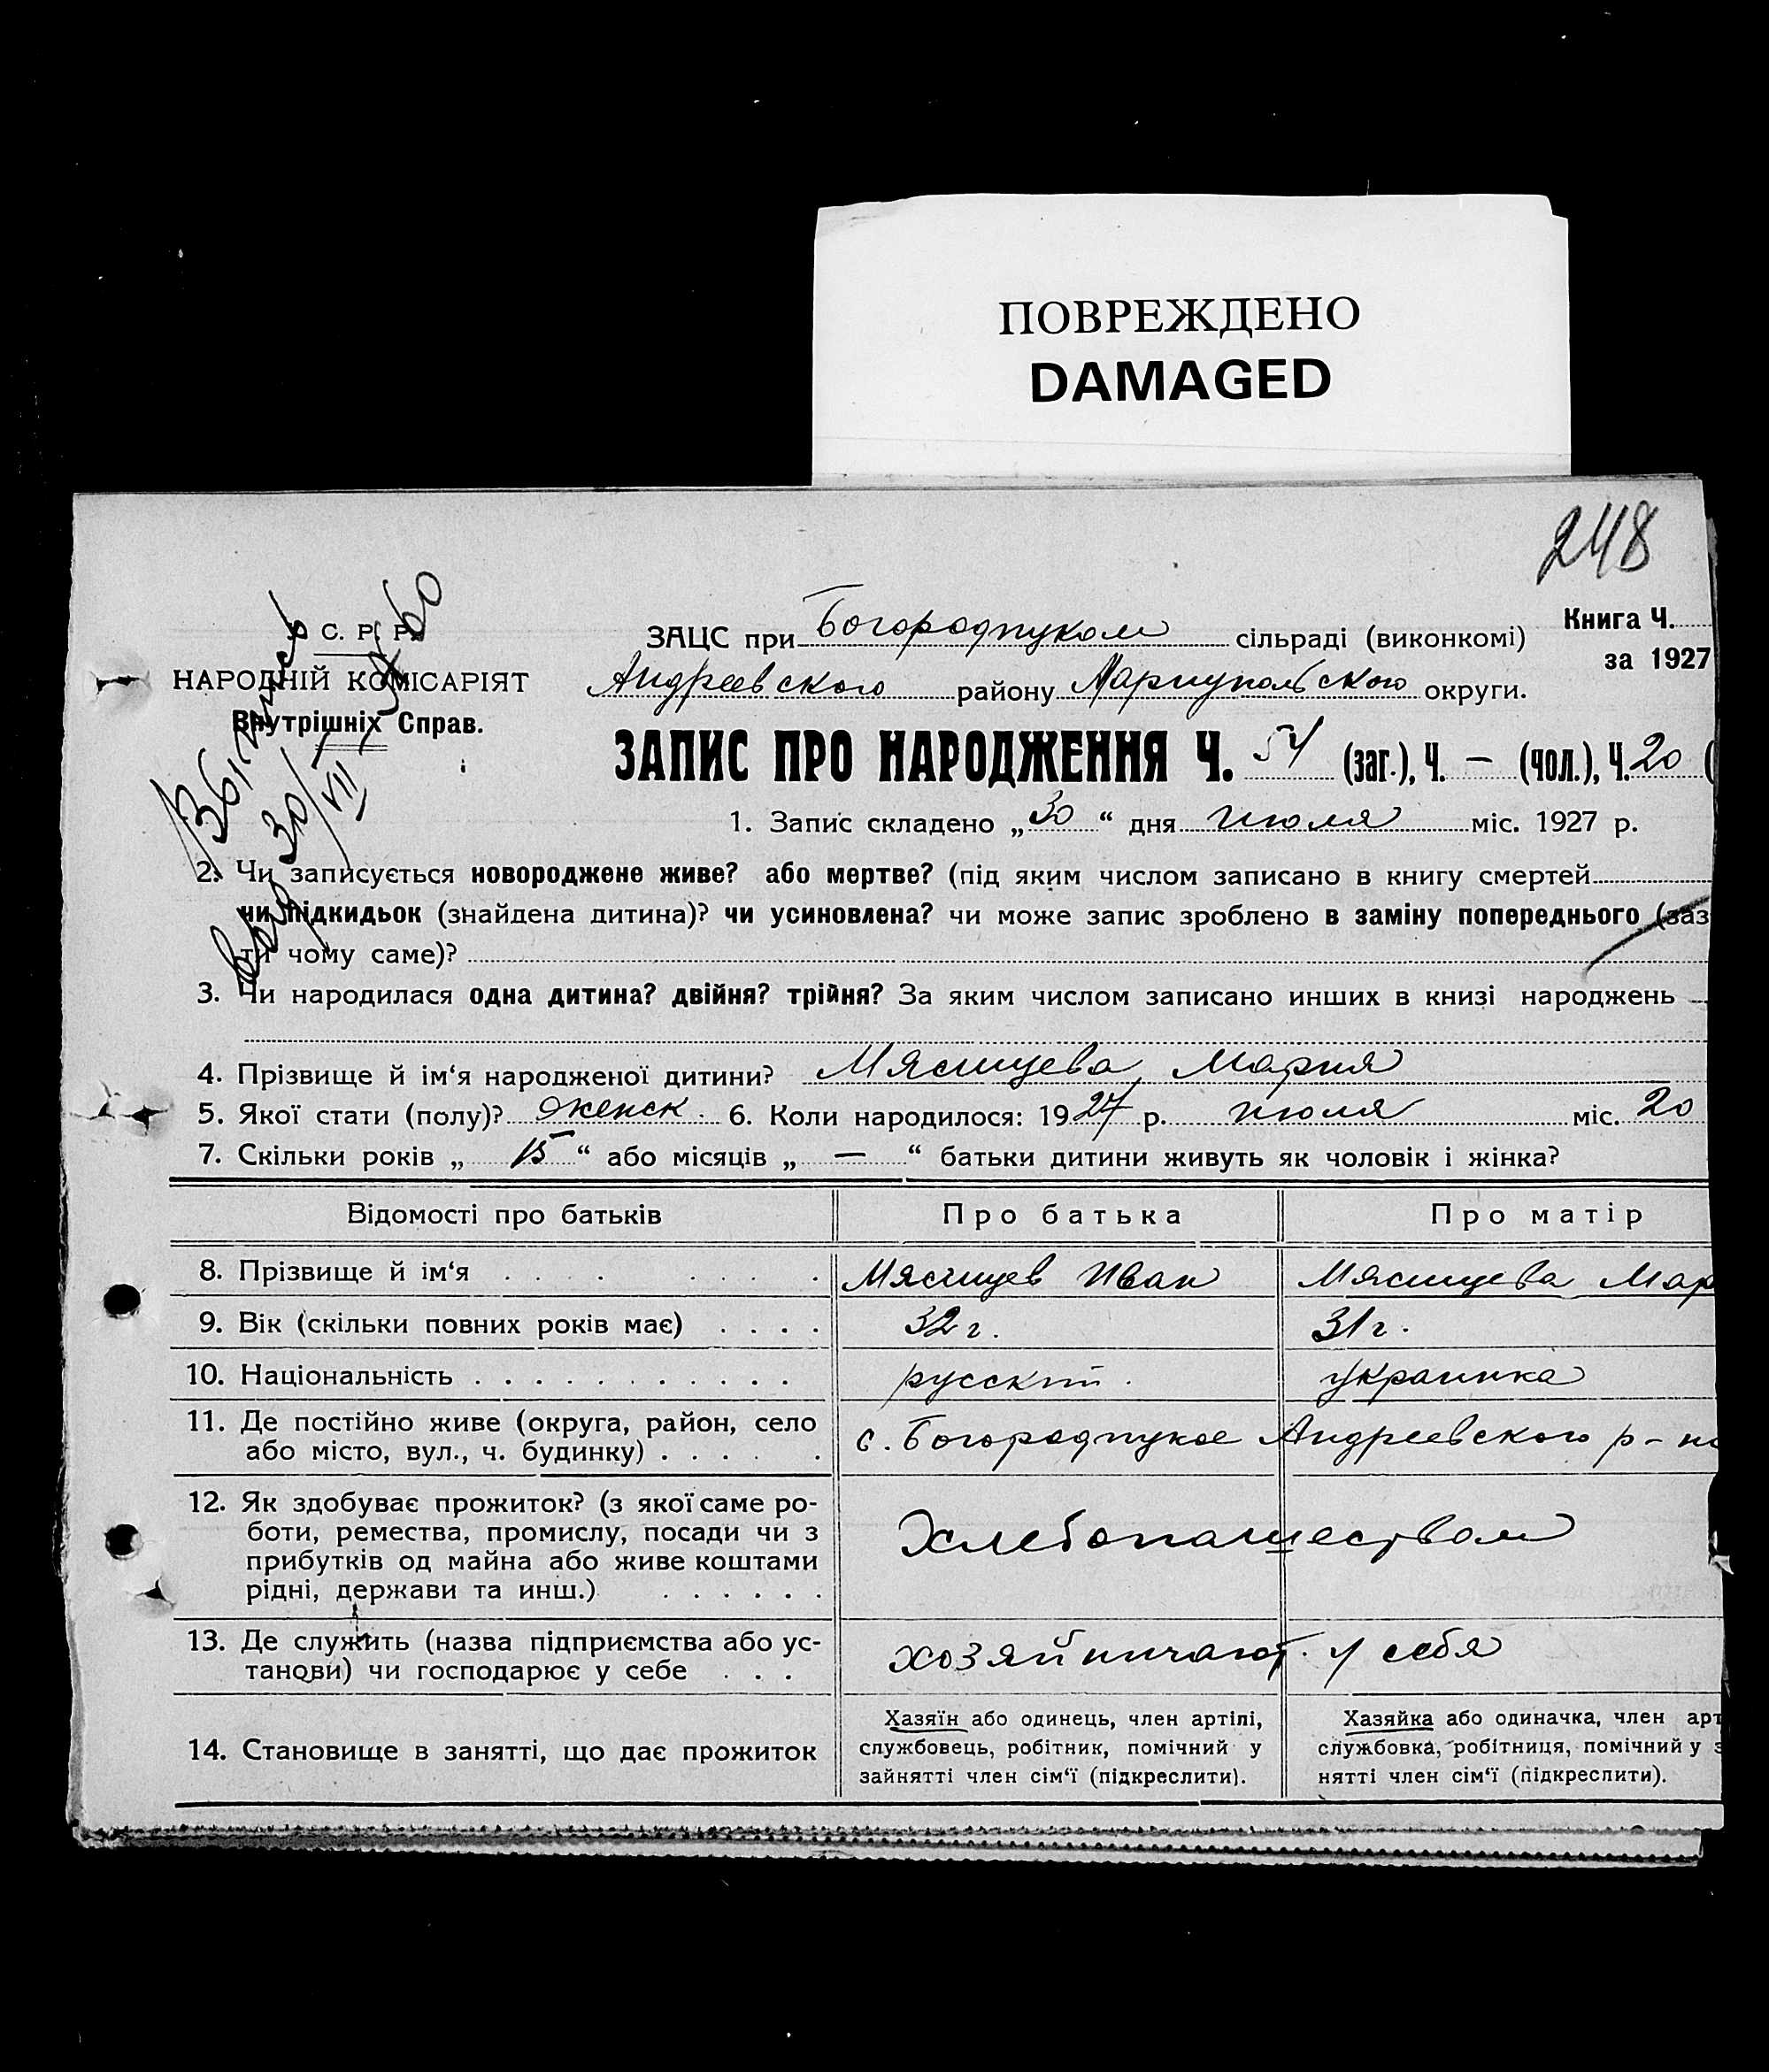 ПОВРЕЖДЕНО
DAMAGED
248
С. Р. Р.
НАРОДНІЙ КОМІСАРІЯТ
Внутрішніх Справ.
Книга Ч.
за 1927
ЗАЦС при Богородицком сільраді (виконкомі)
Андреевского району Мариупольского округи.
ЗАПИС ПРО НАРОДЖЕННЯ Ч. 54 (заг.), Ч. — (чол.), Ч. 20 (
1. Запис складено „30“ дня июля міс. 1927 р.
2. Чи записується новороджене живе? або мертве? (під яким числом записано в книгу смертей
чи підкидьок (знайдена дитина)? чи усиновлена? чи може запис зроблено в заміну попереднього (заз
ти чому саме)?
3. Чи народилася одна дитина? двійня? трійня? За яким числом записано инших в книзі народжень
4. Прізвище й ім‘я народженої дитини? Мясищева Мария
5. Якої стати (полу)? женск. 6. Коли народилося: 1927 р. июля міс. 20
7. Скільки років „ 15 “ або місяців „ — “ батьки дитини живуть як чоловік і жінка?
Відомості про батьків Про батька Про матір
8. Прізвище й ім‘я Мясищев Иван Мясищева Мар
9. Вік (скільки повних років має) 32 г. 31 г.
10. Національність русский украинка
11. Де постійно живе (округа, район, село
або місто, вул., ч. будинку) с. Богородицкое Андреевского р-на
12. Як здобуває прожиток? (з якої саме ро-
боти, ремества, промислу, посади чи з
прибутків од майна або живе коштами
рідні, держави та инш.)
Хлебопашеством
13. Де служить (назва підприємства або ус-
танови) чи господарює у себе
хозяйничают у себя
14. Становище в занятті, що дає прожиток
Хазяїн або одинець, член артілі,
службовець, робітник, помічний у
зайнятті член сім‘ї (підкреслити).
Хазяйка або одиначка, член арт
службовка, робітниця, помічний у з
нятті член сім‘ї (підкреслити).